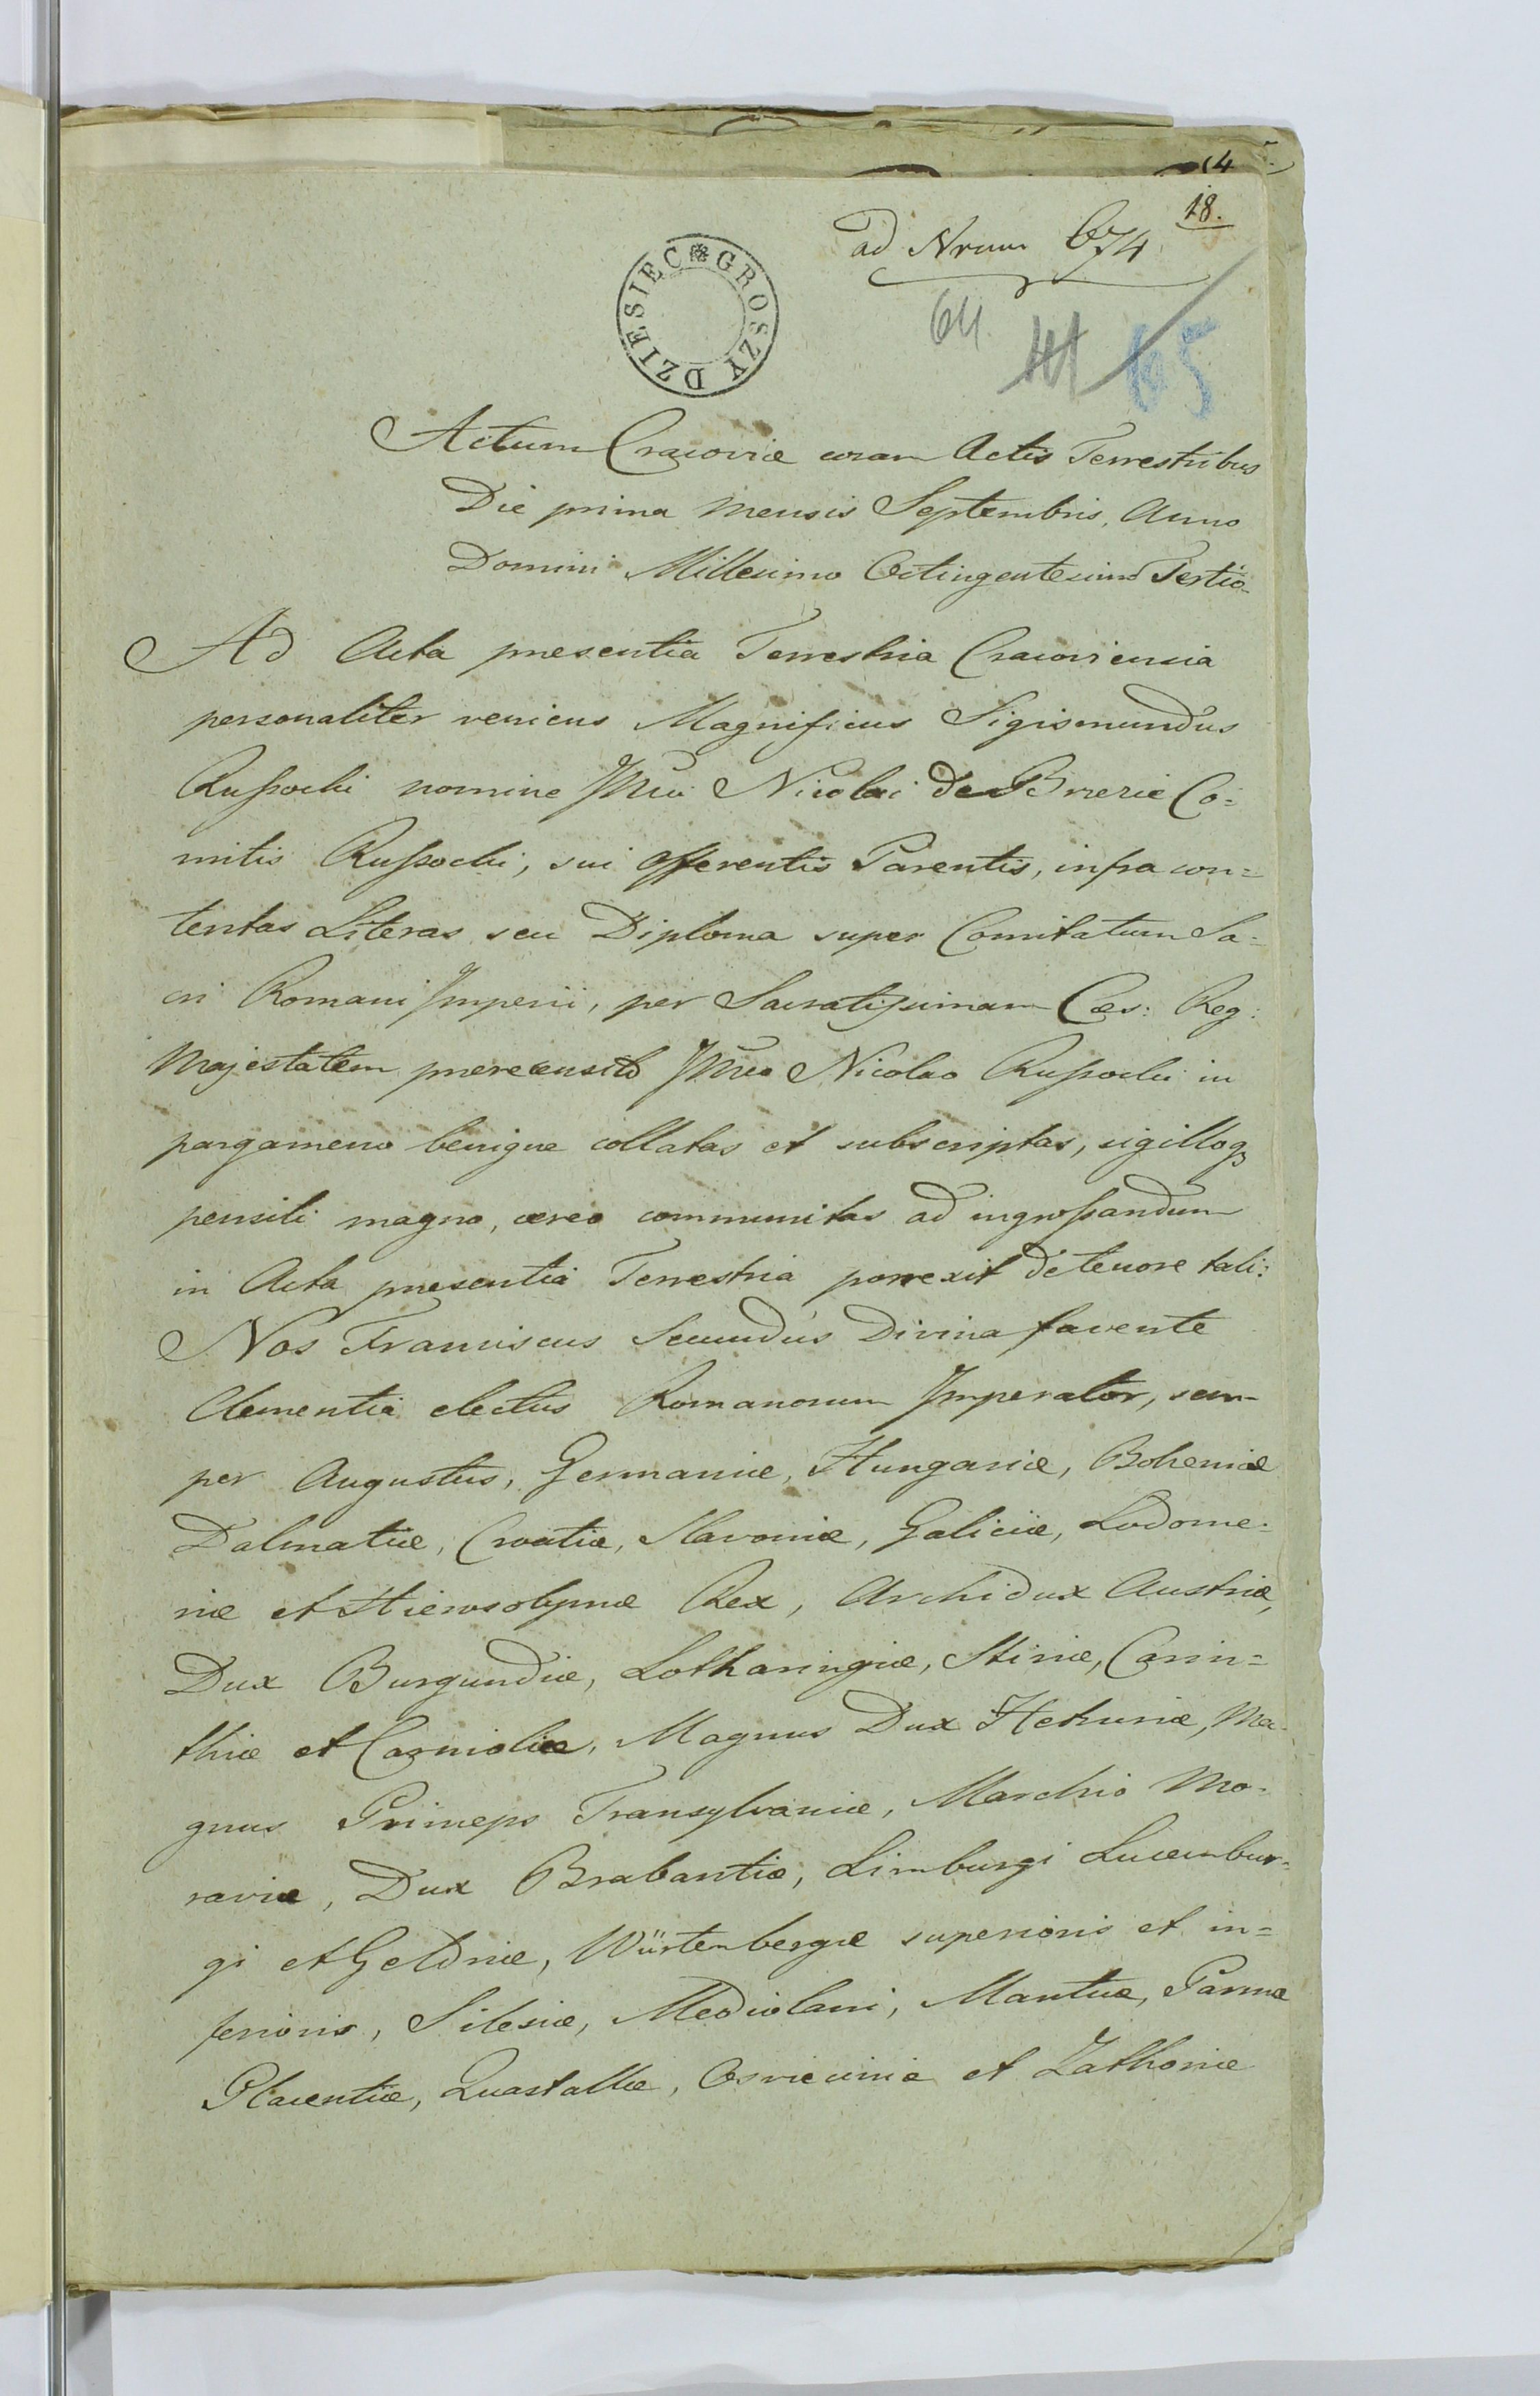 14
18.
ad Nrum 674
DZIESIEC GROSZY
64
65
Actum Cracoviæ coram Actis Terrestribus
Die prima mensis Septembris, Anno
Domini Millesimo Octingentesimo Tertio.
Ad Acta presentia Terrestria Cracoviensia
personaliter veniens Magnificus Sigismundus
Rußocki nomine Jllmi Nicolai de Brzezie Co=
mitis Rußocki, sui offerentis Parentis, infra con=
tentas Literas seu Diploma super Comitatum Sa=
cri Romani Jmperii, per Sacratißimam Cæs: Reg:
Majestatem prerecensito Jllmo Nicolao Rußocki in
pargameno benigne collatas et subscriptas, sigilloq3
pensili magno, cereo communitas ad ingroßandum
in Acta presentia Terrestria porrexit de tenore tali:
Nos Franciscus Secundus Divina favente
Clementia electus Romanorum Jmperator, sem-
per Augustus, Germaniæ, Hungariæ, Bohemiæ
Dalmatiæ, Croatiæ, Slavoniæ, Galiciæ, Lodome=
riæ et Hierosolymæ Rex, Archidux Austriæ,
Dux Burgundiæ, Lotharingiæ, Stiriæ, Carin=
thiæ et Carnioliæ, Magnus Dux Hetruriæ, Ma-
gnus Princeps Transylvaniæ, Marchio Mo-
raviæ, Dux Brabantiæ, Limburgi Lucembur=
gi et Geldriæ, Würtembergæ superioris et in=
ferioris, Silesiæ, Mediolani, Mantuæ, Parmæ
Placentiæ, Quastallæ, Osvieciniæ et Zathoriæ